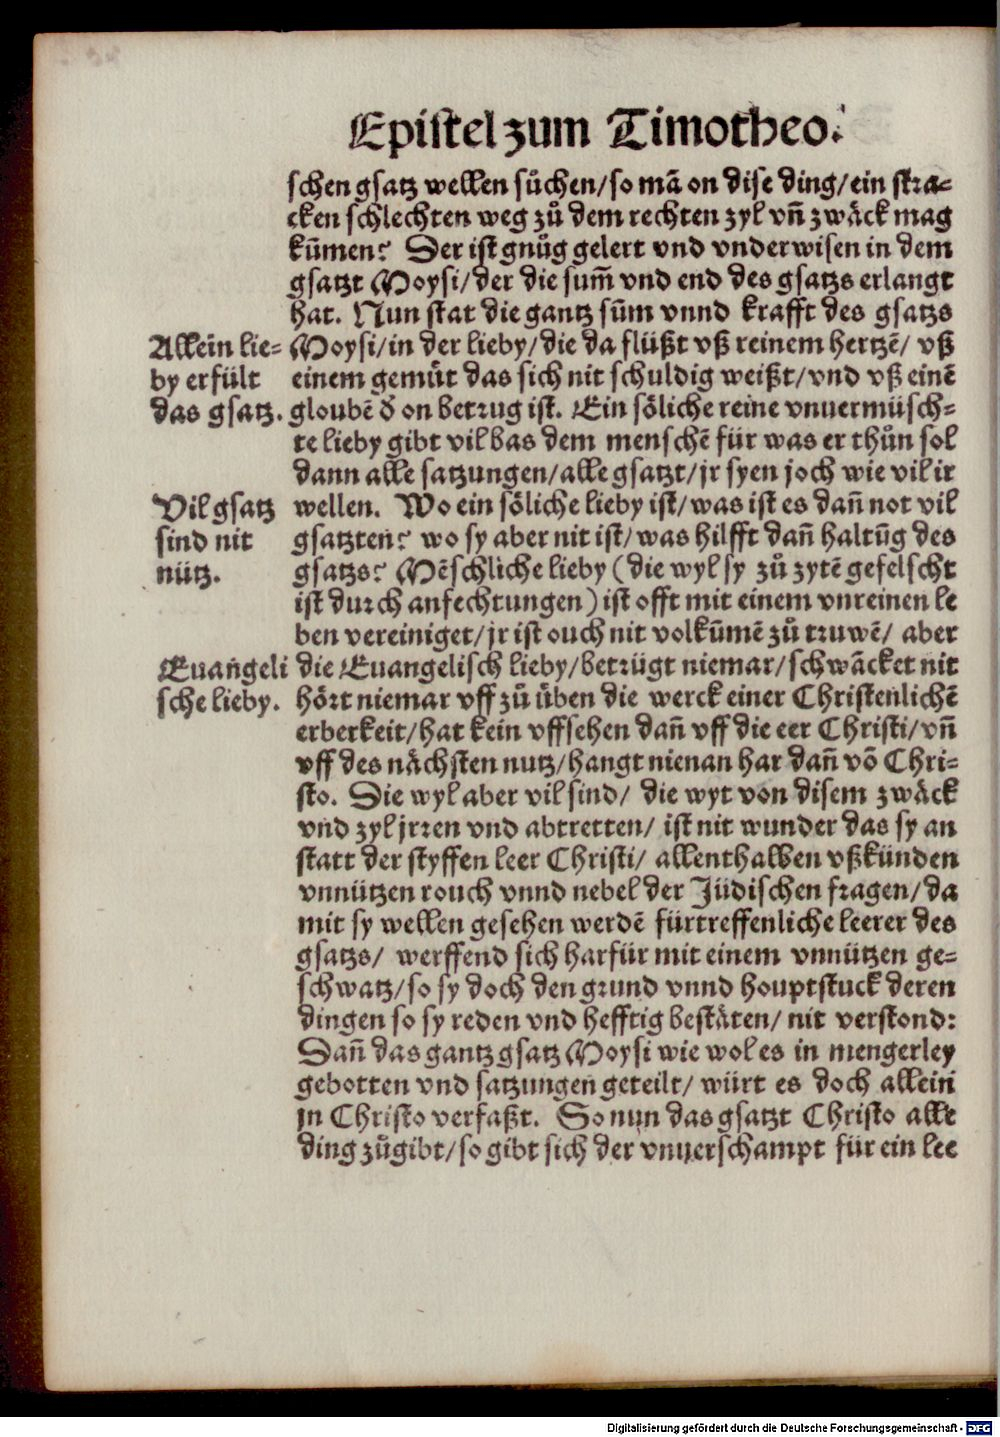 Epistel zum Timotheo.
schen gsatz wellen sůchen/so mā on dise ding/ein stra-
cken schlechten weg zů dem rechten zyl vñ zwäck mag
kūmen? Der ist gnůg gelert vnd vnderwisen in dem
gsatzt Moysi/der die sum̄ vnd end des gsatzs erlangt
hat. Nun stat die gantz sūm vnnd krafft des gsatzs
Allein lie-
by erfült
das gsatz.
Moysi/in der lieby/die da flüßt vß reinem hertzē/ vß
einem gemüt das sich nit schuldig weißt/vnd vß einē
gloubē d̕ on betrug ist. Ein söliche reine vnuermüsch-
te lieby gibt vil bas dem menschē für was er thůn sol
dann alle satzungen/alle gsatzt/jr syen joch wie vil ir
Vil gsatz
sind nit
nütz.
wellen. Wo ein söliche lieby ist/was ist es dañ not vil
gsatzten? wo sy aber nit ist/was hilfft dañ haltūg des
gsatzs? Mēschliche lieby (die wyl sy zů zytē gefelscht
ist durch anfechtungen) ist offt mit einem vnreinen le
ben vereiniget/jr ist ouch nit volkūmē zů truwē/ aber
Euangeli
sche lieby.
die Euangelisch lieby/betrügt niemar/schwäcket nit
hört niemar vff zů üben die werck einer Christenlichē
erberkeit/hat kein vffsehen dañ vff die eer Christi/vñ
vff des nächsten nutz/hangt nienan har dañ vō Chri-
sto. Die wyl aber vil sind/ die wyt von disem zwäck
vnd zyl jrren vnd abtretten/ ist nit wunder das sy an
statt der styffen leer Christi/ allenthalben vßkünden
vnnützen rouch vnnd nebel der Jüdischen fragen/da
mit sy wellen gesehen werdē fürtreffenliche leerer des
gsatzs/ werffend sich harfür mit einem vnnützen ge-
schwatz/so sy doch den grund vnnd houptstuck deren
dingen so sy reden vnd hefftig bestäten/ nit verstond:
Dañ das gantz gsatz Moysi wie wol es in mengerley
gebotten vnd satzungen geteilt/ würt es doch allein
jn Christo verfaßt. So nun das gsatzt Christo alle
ding zůgibt/so gibt sich der vnuerschampt für ein lee
Digitalisierung gefördert durch die Deutsche Forschungsgemeinschaft - DFG